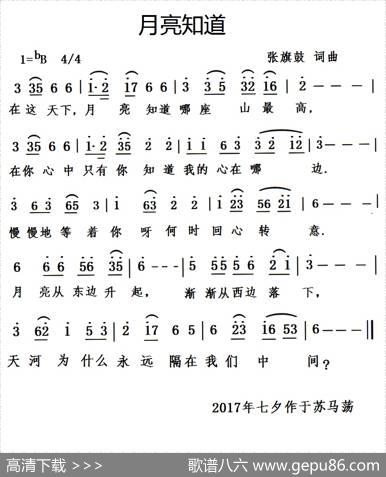 月亮知道
1=bB 4/4 张旗鼓 词曲
3 35 6 6 | i· 2 17 6 6 | 3 3 5 32 16 | 2 - - - |
在这 天下,月 亮 知道 哪座 山 最 高,
3 35 6 6 | i· 2 2 2 | i i 6 3 3 2 12 | 3 - - - |
在你 心中 只有 你 知道 我的 心在 哪 边.
6 3 63 65 3 | i 63 2 2 | i 23 56 21 | 6 - - - |
慢 慢地 等 着 你 呀 何 时 回 心 转 意.
6 6 6 56 35 | 6 - - - | 5 55 56 2 1 | 3 - - - |
月 亮从 东边 升 起, 渐 渐从 西边 落 下,
3 62 i 5 3 | 2 17 6 5 | 6 23 16 53 | 6 - - ‖
天 河 为 什么 永 远 隔在 我 们 中 间?
2017年七夕作于苏马荡
高清下载 >>>
歌谱八六 www.gepu86.com